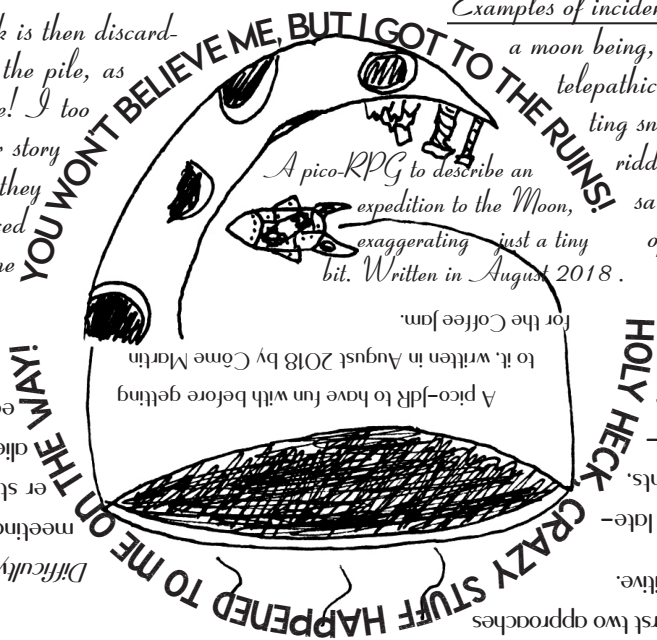 k is then discard-
the pile, as
e! I too
r story
they
Examples of inciden
a moon being,
telepathic
ting sn
ridd
sa
YOU WON'T BELIEVE ME, BUT I GOT TO THE RUINS!
A pico-RPG to describe an
expedition to the Moon,
exaggerating just a tiny
bit. Written in August 2018.
A pico-JdR to have fun with before getting
to it, written in August 2018 by Côme Martin
for the Coffee Jam.
HOLY HECK, CRAZY STUFF HAPPENED TO ME ON THE WAY!
rst two approaches
itive.
late-
nts.
Difficulty
meeting
er st
alie